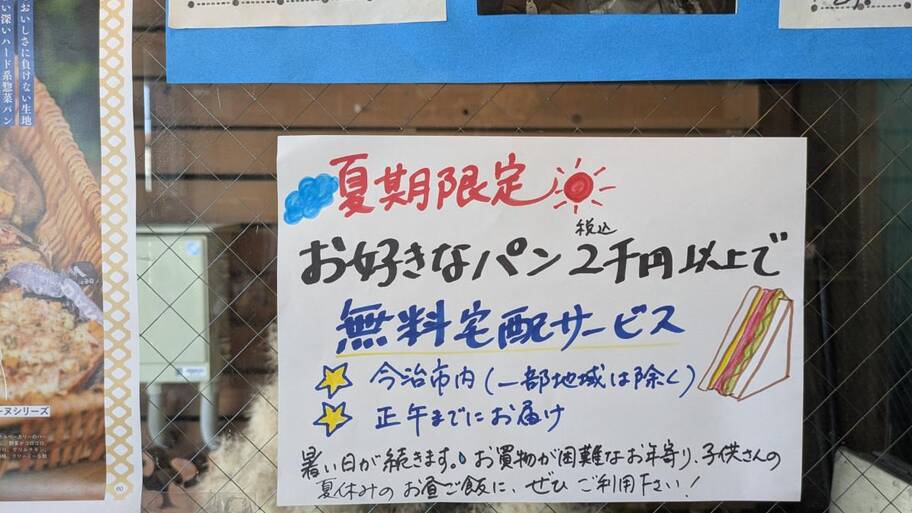 おいしさに負けない生地
い深いハード系惣菜パン
ーヌシリーズ
60
夏期限定
税込
お好きなパン2千円以上で
無料宅配サービス
今治市内(一部地域は除く)
正午までにお届け
暑い日が続きます。お買物が困難なお年寄り、子供さんの
夏休みのお昼ご飯に、ぜひご利用下さい!